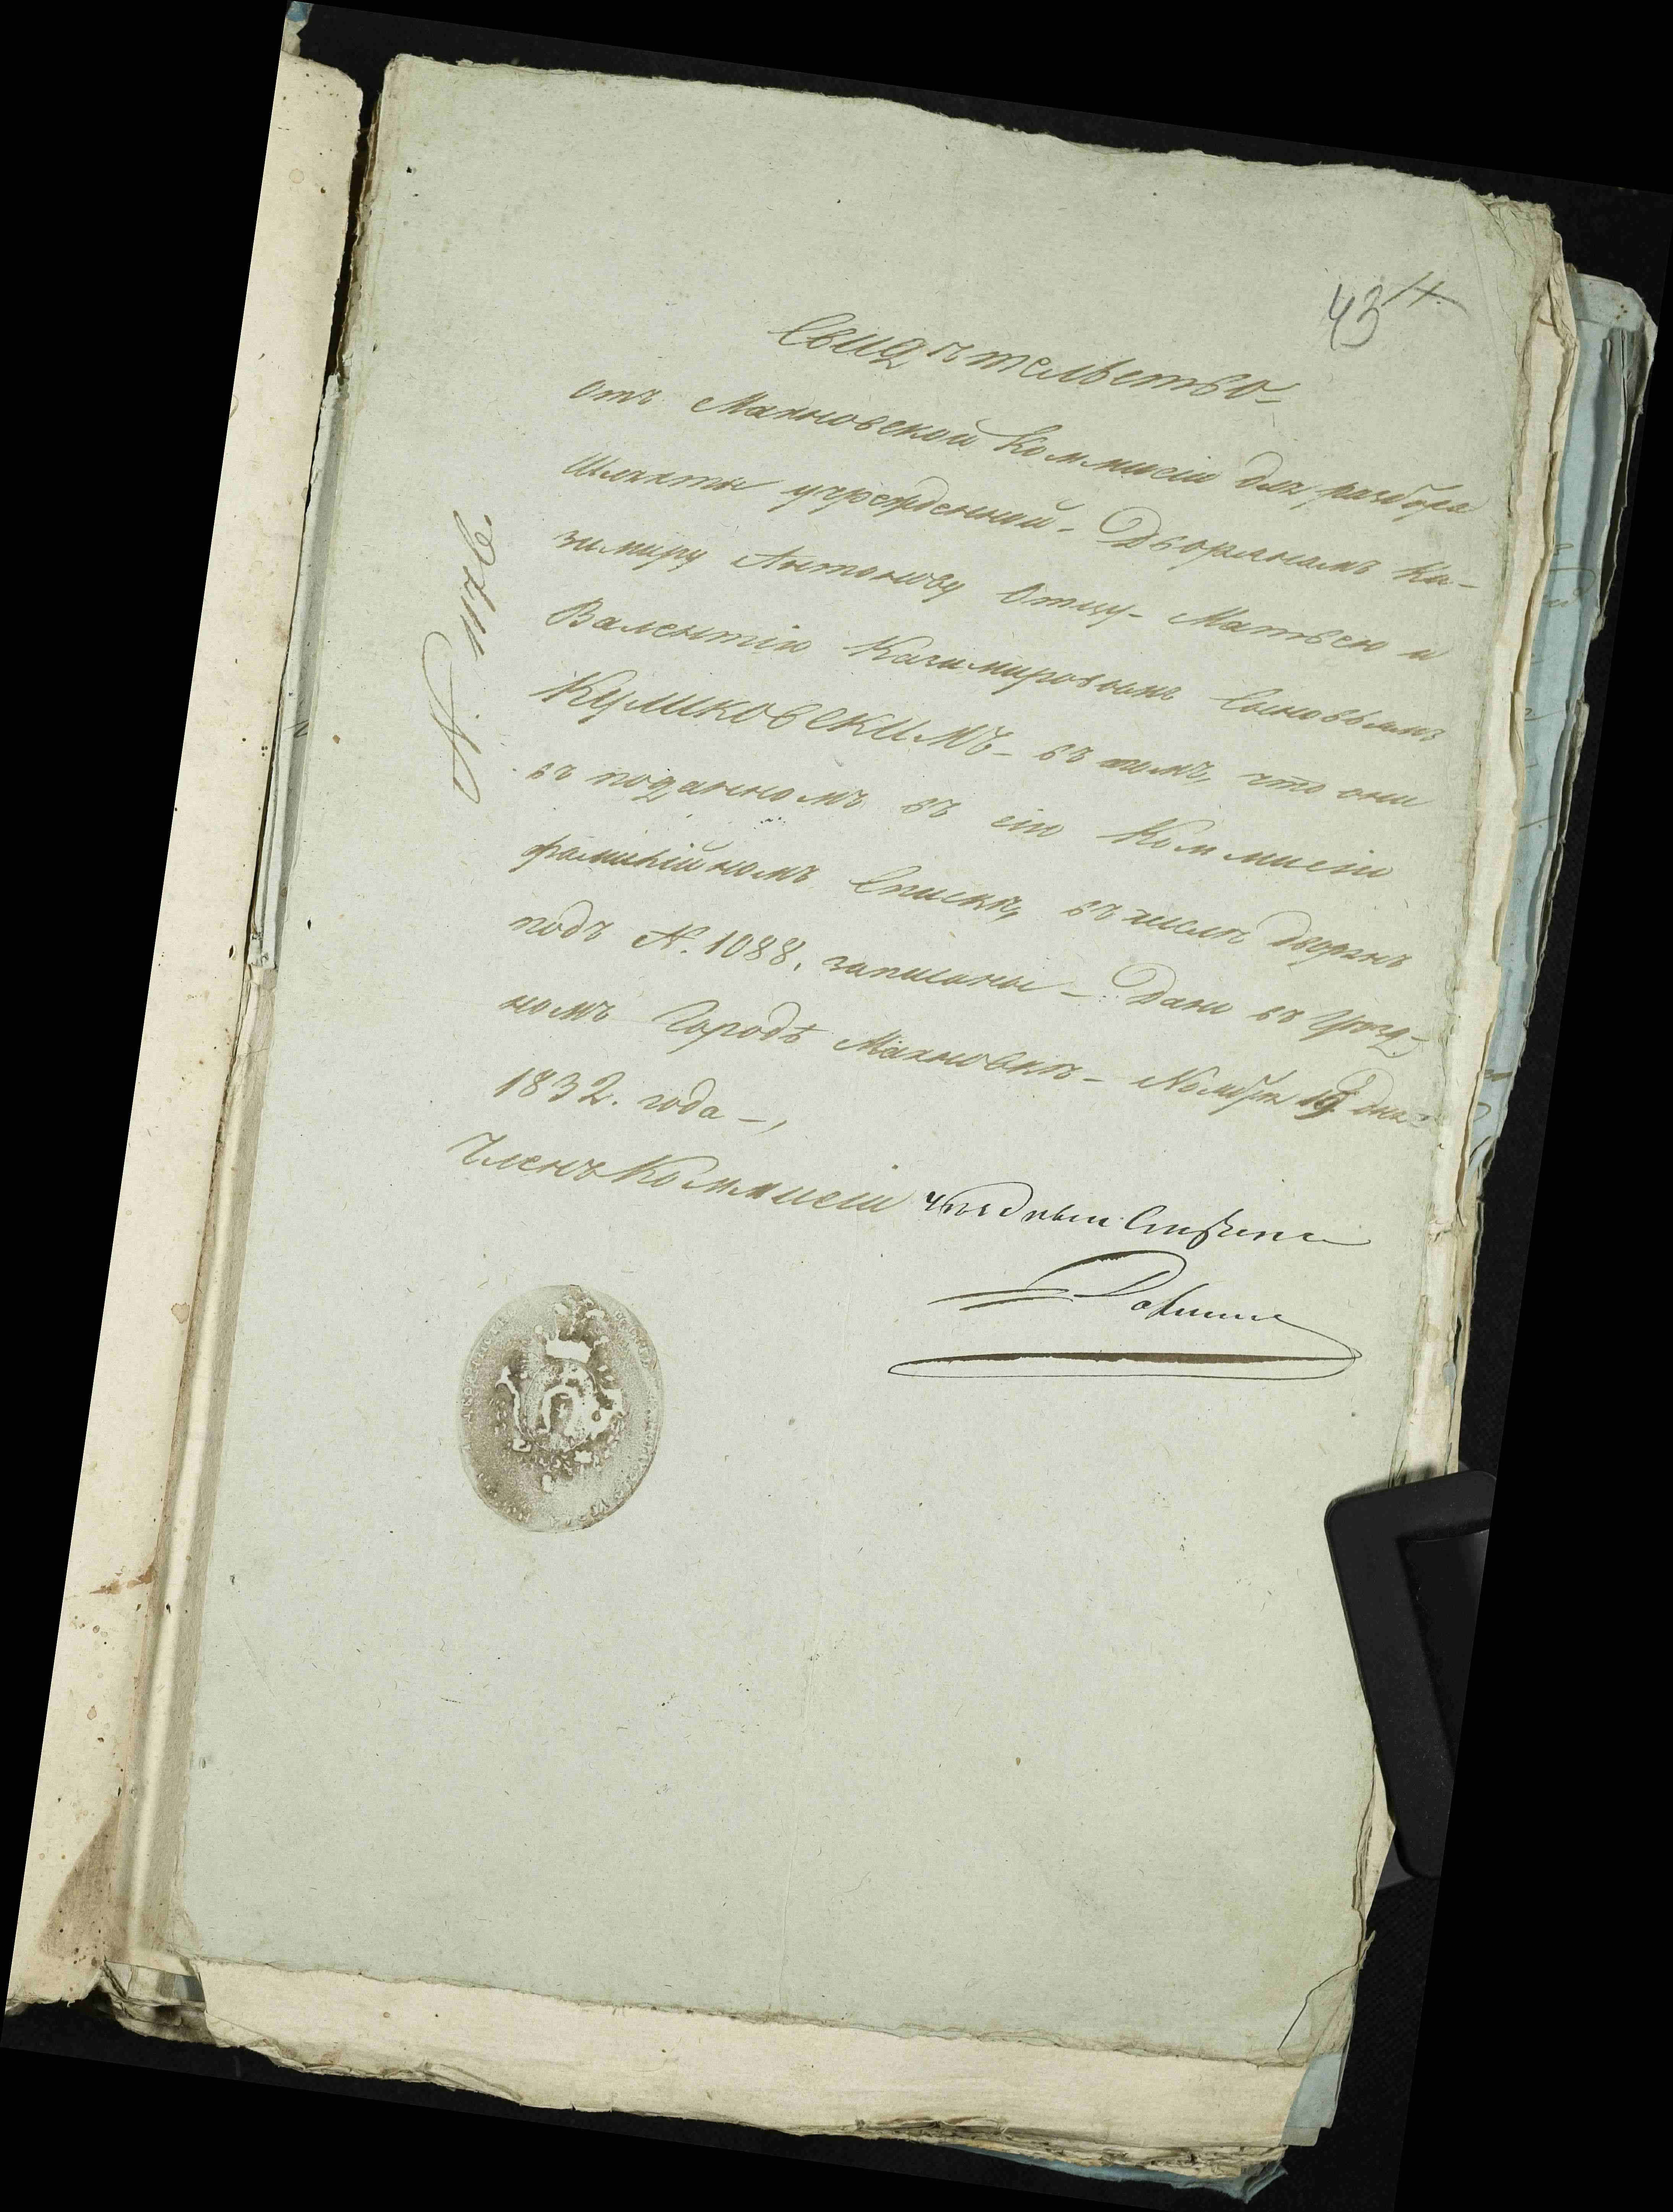 43
Свидѣтельство
Отъ Махновской Коммисіи для разбора
Шляхты учрежденной. Дворянамъ Ка-
зимиру Антонову Отцу - Матвею и
Валентію Казимировымъ Сыновьямъ
Куликовскимъ - въ томъ, что они
въ поданномъ въ сію Коммисію
фамилійномъ Спискѣ, въ числѣ дворянъ
подъ №. 1088. записаны - Дано въ Уѣзд-
номъ Городѣ Махновкѣ - Ноября 19 дня
1832. года -,
Членъ Коммисіи уѣздный